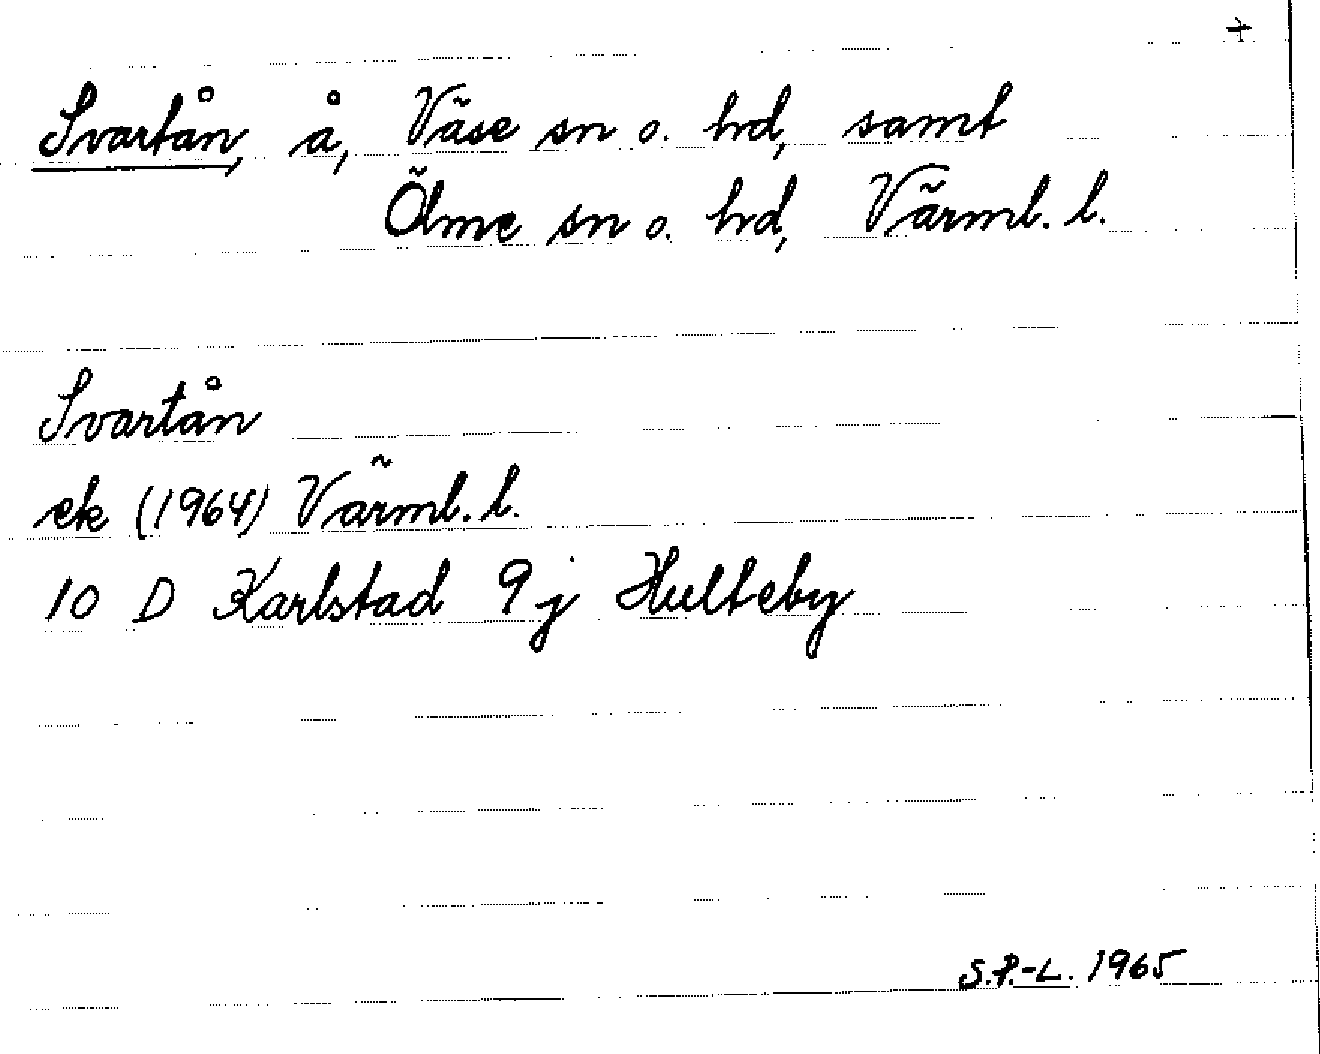 +
Svartån, å, Väse sn o. hd, samt
Ölme sn o. hd, Värml. l.
Svartån
ek (1964) Värml. l.
10 D Karlstad 9 j Hulteby
S.P.-L. 1965